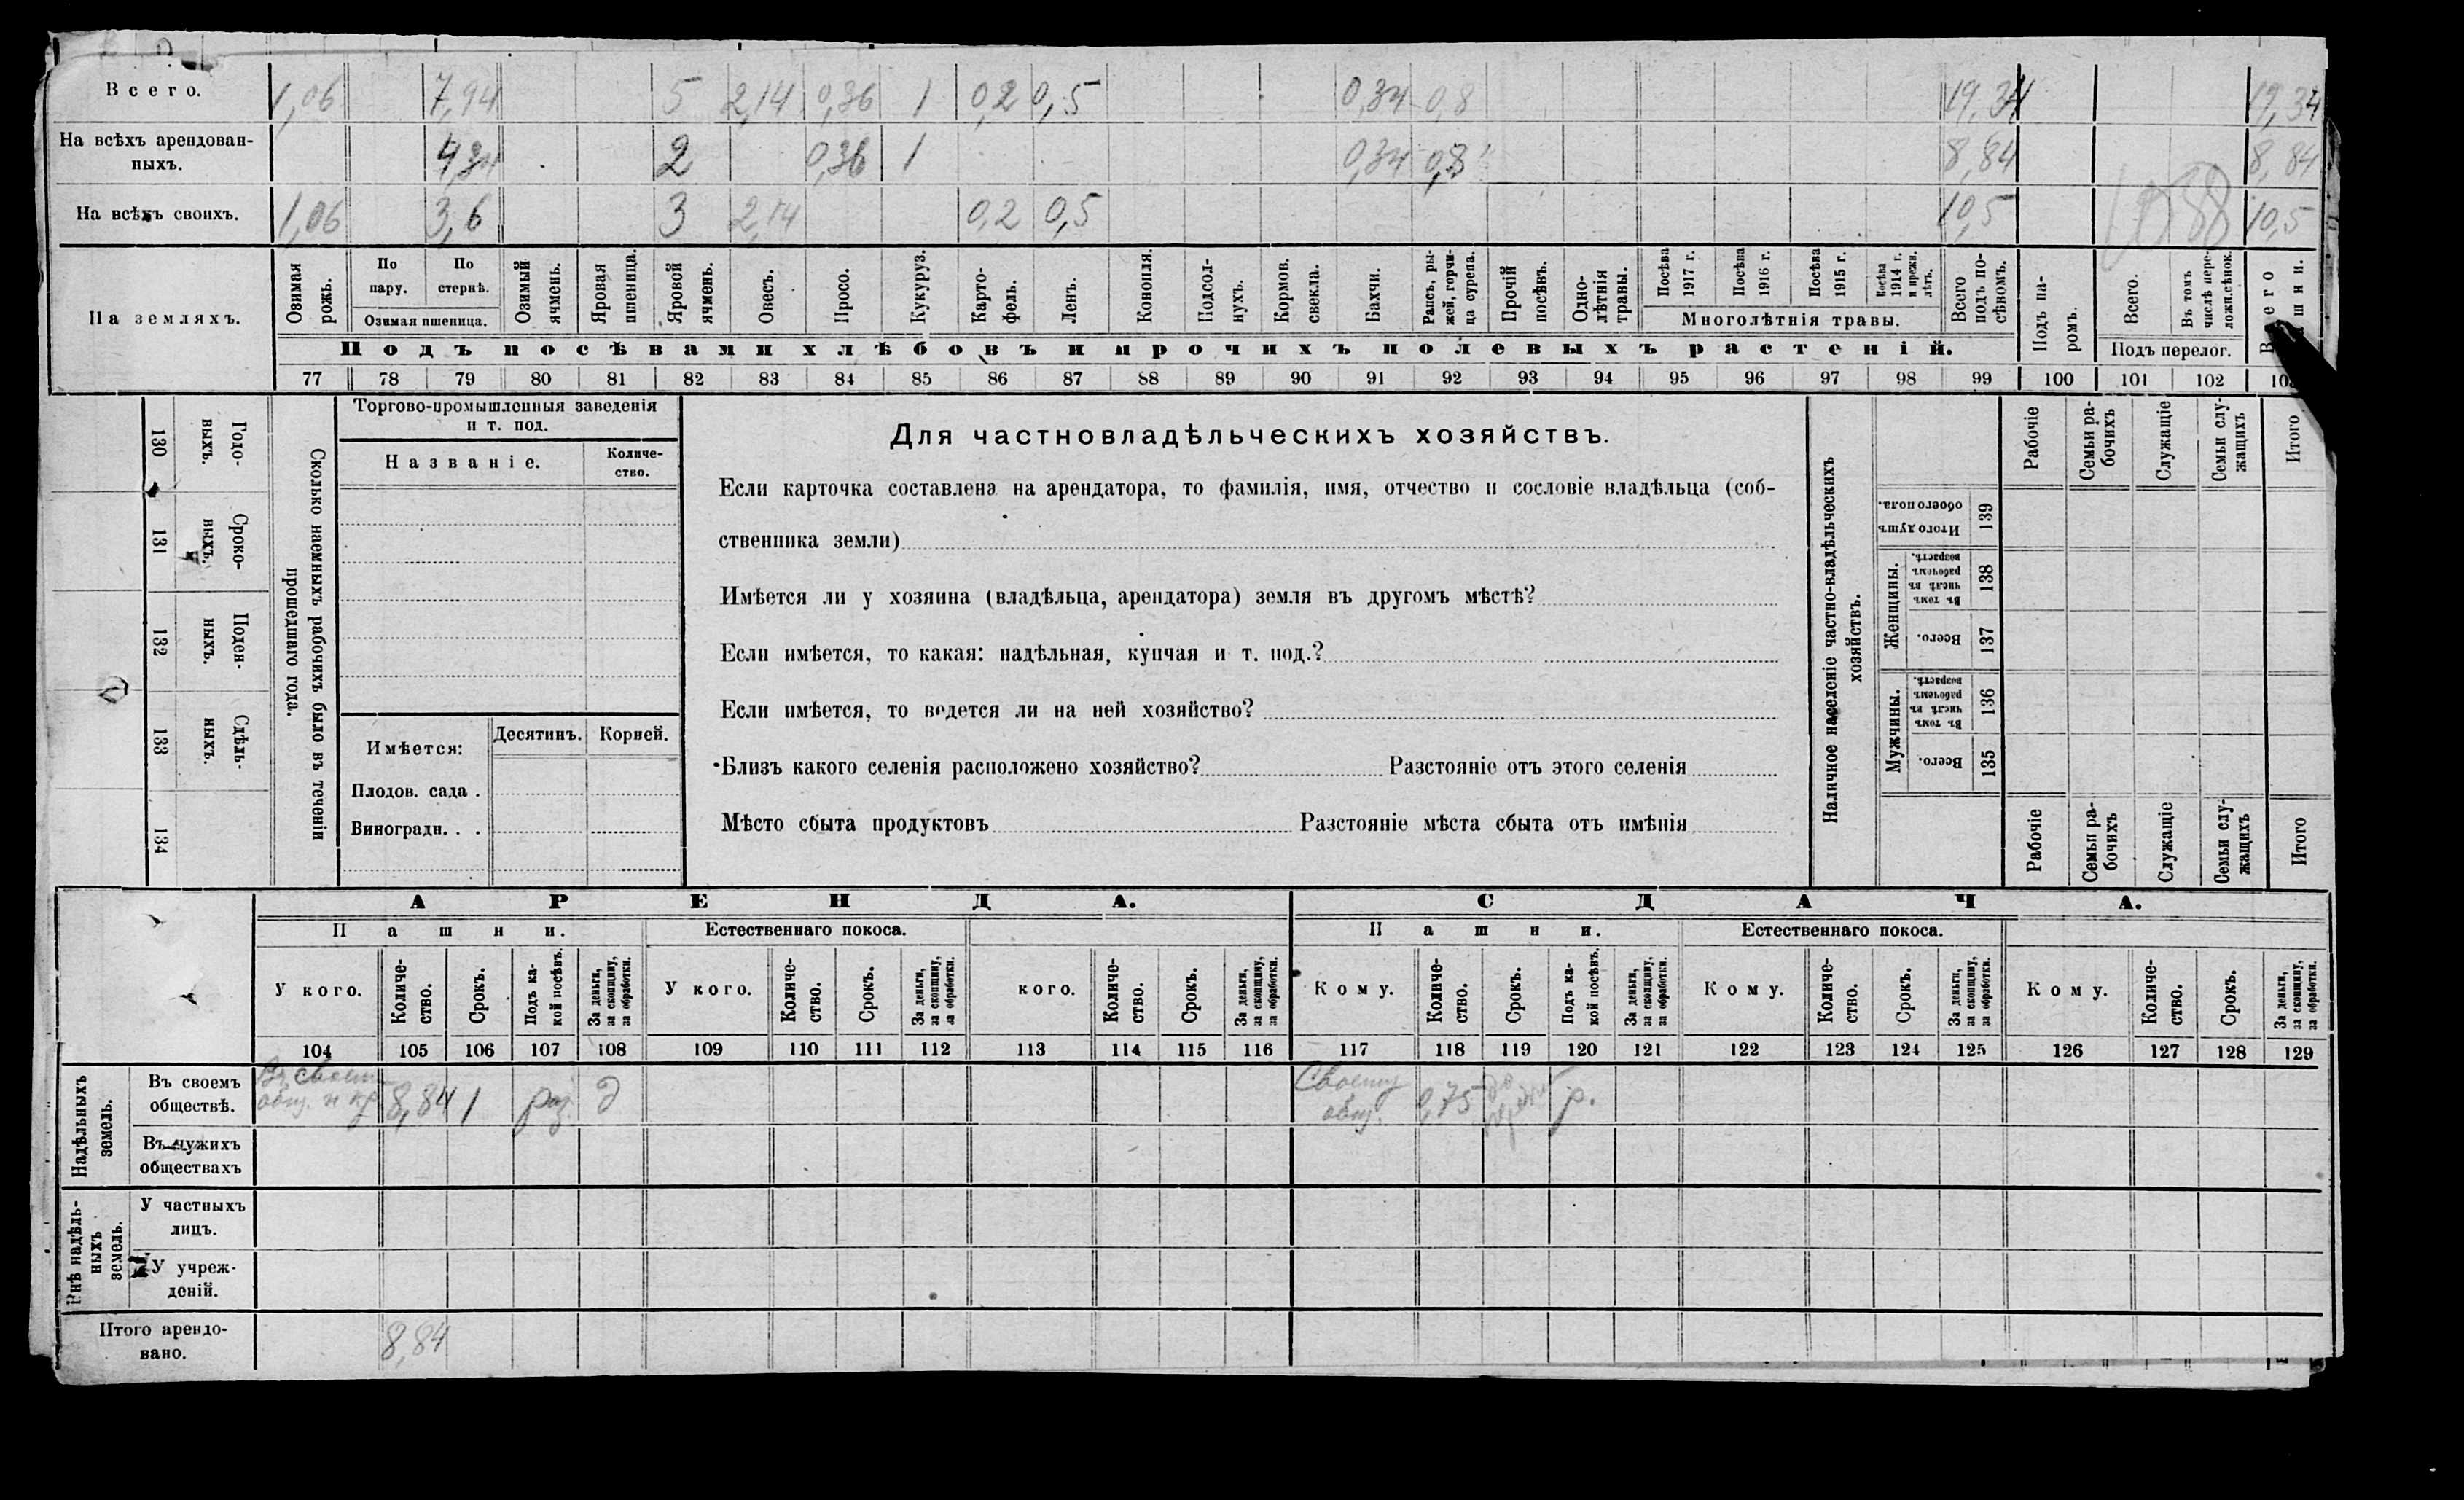 Всего. 1,06 7,94 5 2,14 0,36 1 0,2 0,5 0,34 0,8 19,34 19,34
На всѣхъ арендованныхъ. 4,34 2 0,36 1 0,34 0,8 8,84 8,84
На всѣхъ своихъ. 1,06 3,6 3 2,14 0,2 0,5 10,5 10,5
На земляхъ.
Озимая рожь.
По пару.
По стернѣ.
Озимая пшеница.
Озимый ячмень.
Яровая пшеница.
Яровой ячмень.
Овесъ.
Просо.
Кукуруз.
Картофель.
Ленъ.
Конопля.
Подсолнухъ.
Кормов. свекла.
Бахчи.
Рапсъ, рыжей, горчица сурепа.
Прочій посѣвъ.
Однолѣтнія травы.
Посѣва 1917 г.
Посѣва 1916 г.
Посѣва 1915 г.
Посѣва 1914 г. и прежн. лѣтъ.
Многолѣтнія травы.
Всего подъ посѣвомъ.
Подъ паромъ.
Всего.
Въ томъ числѣ переложн. сѣнок.
Подъ перелог.
Подъ посѣвами хлѣбовъ и прочихъ полевыхъ растеній.
77 78 79 80 81 82 83 84 85 86 87 88 89 90 91 92 93 94 95 96 97 98 99 100 101 102
130 Годовыхъ.
131 Сроковыхъ.
132 Поденныхъ.
133 Сдѣльныхъ.
134
Сколько наемныхъ рабочихъ было въ теченіи прошедшаго года.
Торгово-промышленныя заведенія
и т. под.
Названіе.
Количество.
Имѣется:
Десятинъ.
Корней.
Плодов. сада .
Виноградн. . .
Для частновладѣльческихъ хозяйствъ.
Если карточка составлена на арендатора, то фамилія, имя, отчество и сословіе владѣльца (соб-
ственника земли)
Имѣется ли у хозяина (владѣльца, арендатора) земля въ другомъ мѣстѣ?
Если имѣется, то какая: надѣльная, купчая и т. под.?
Если имѣется, то ведется ли на ней хозяйство?
Близъ какого селенія расположено хозяйство? Разстояніе отъ этого селенія
Мѣсто сбыта продуктовъ Разстояніе мѣста сбыта отъ имѣнія
Наличное населеніе частно-владѣльческихъ хозяйствъ.
Рабочіе
Семьи рабочихъ
Служащіе
Семьи служащихъ
Итого
Итого душъ обоего пола. 139
Женщины.
Въ томъ числѣ въ рабочемъ возрастѣ. 138
Всего. 137
Мужчины.
Въ томъ числѣ въ рабочемъ возрастѣ. 136
Всего. 135
Рабочіе
Семьи рабочихъ
Служащіе
Семьи служащихъ
Итого
АРЕНДА.
СДАЧА.
Пашни.
Естественнаго покоса.
Пашни.
Естественнаго покоса.
У кого.
Количество.
Срокъ.
Подъ какой посѣвъ.
За деньги, за скопщину, за обработки.
У кого.
Количество.
Срокъ.
За деньги, за скопщину, за обработки.
кого.
Количество.
Срокъ.
За деньги, за скопщину, за обработки.
Кому.
Количество.
Срокъ.
Подъ какой посѣвъ.
За деньги, за скопщину, за обработки.
Кому.
Количество.
Срокъ.
За деньги, за скопщину, за обработки.
Кому.
Количество.
Срокъ.
За деньги, за скопщину, за обработки.
104 105 106 107 108 109 110 111 112 113 114 115 116 117 118 119 120 121 122 123 124 125 126 127 128 129
Надѣльныхъ земель.
Въ своемъ обществѣ. 8,84 1 д Своему общ. 0,75 р.
Въ чужихъ обществахъ
Внѣ надѣльныхъ земель.
У частныхъ лицъ.
У учрежденій.
Итого арендовано. 8,84